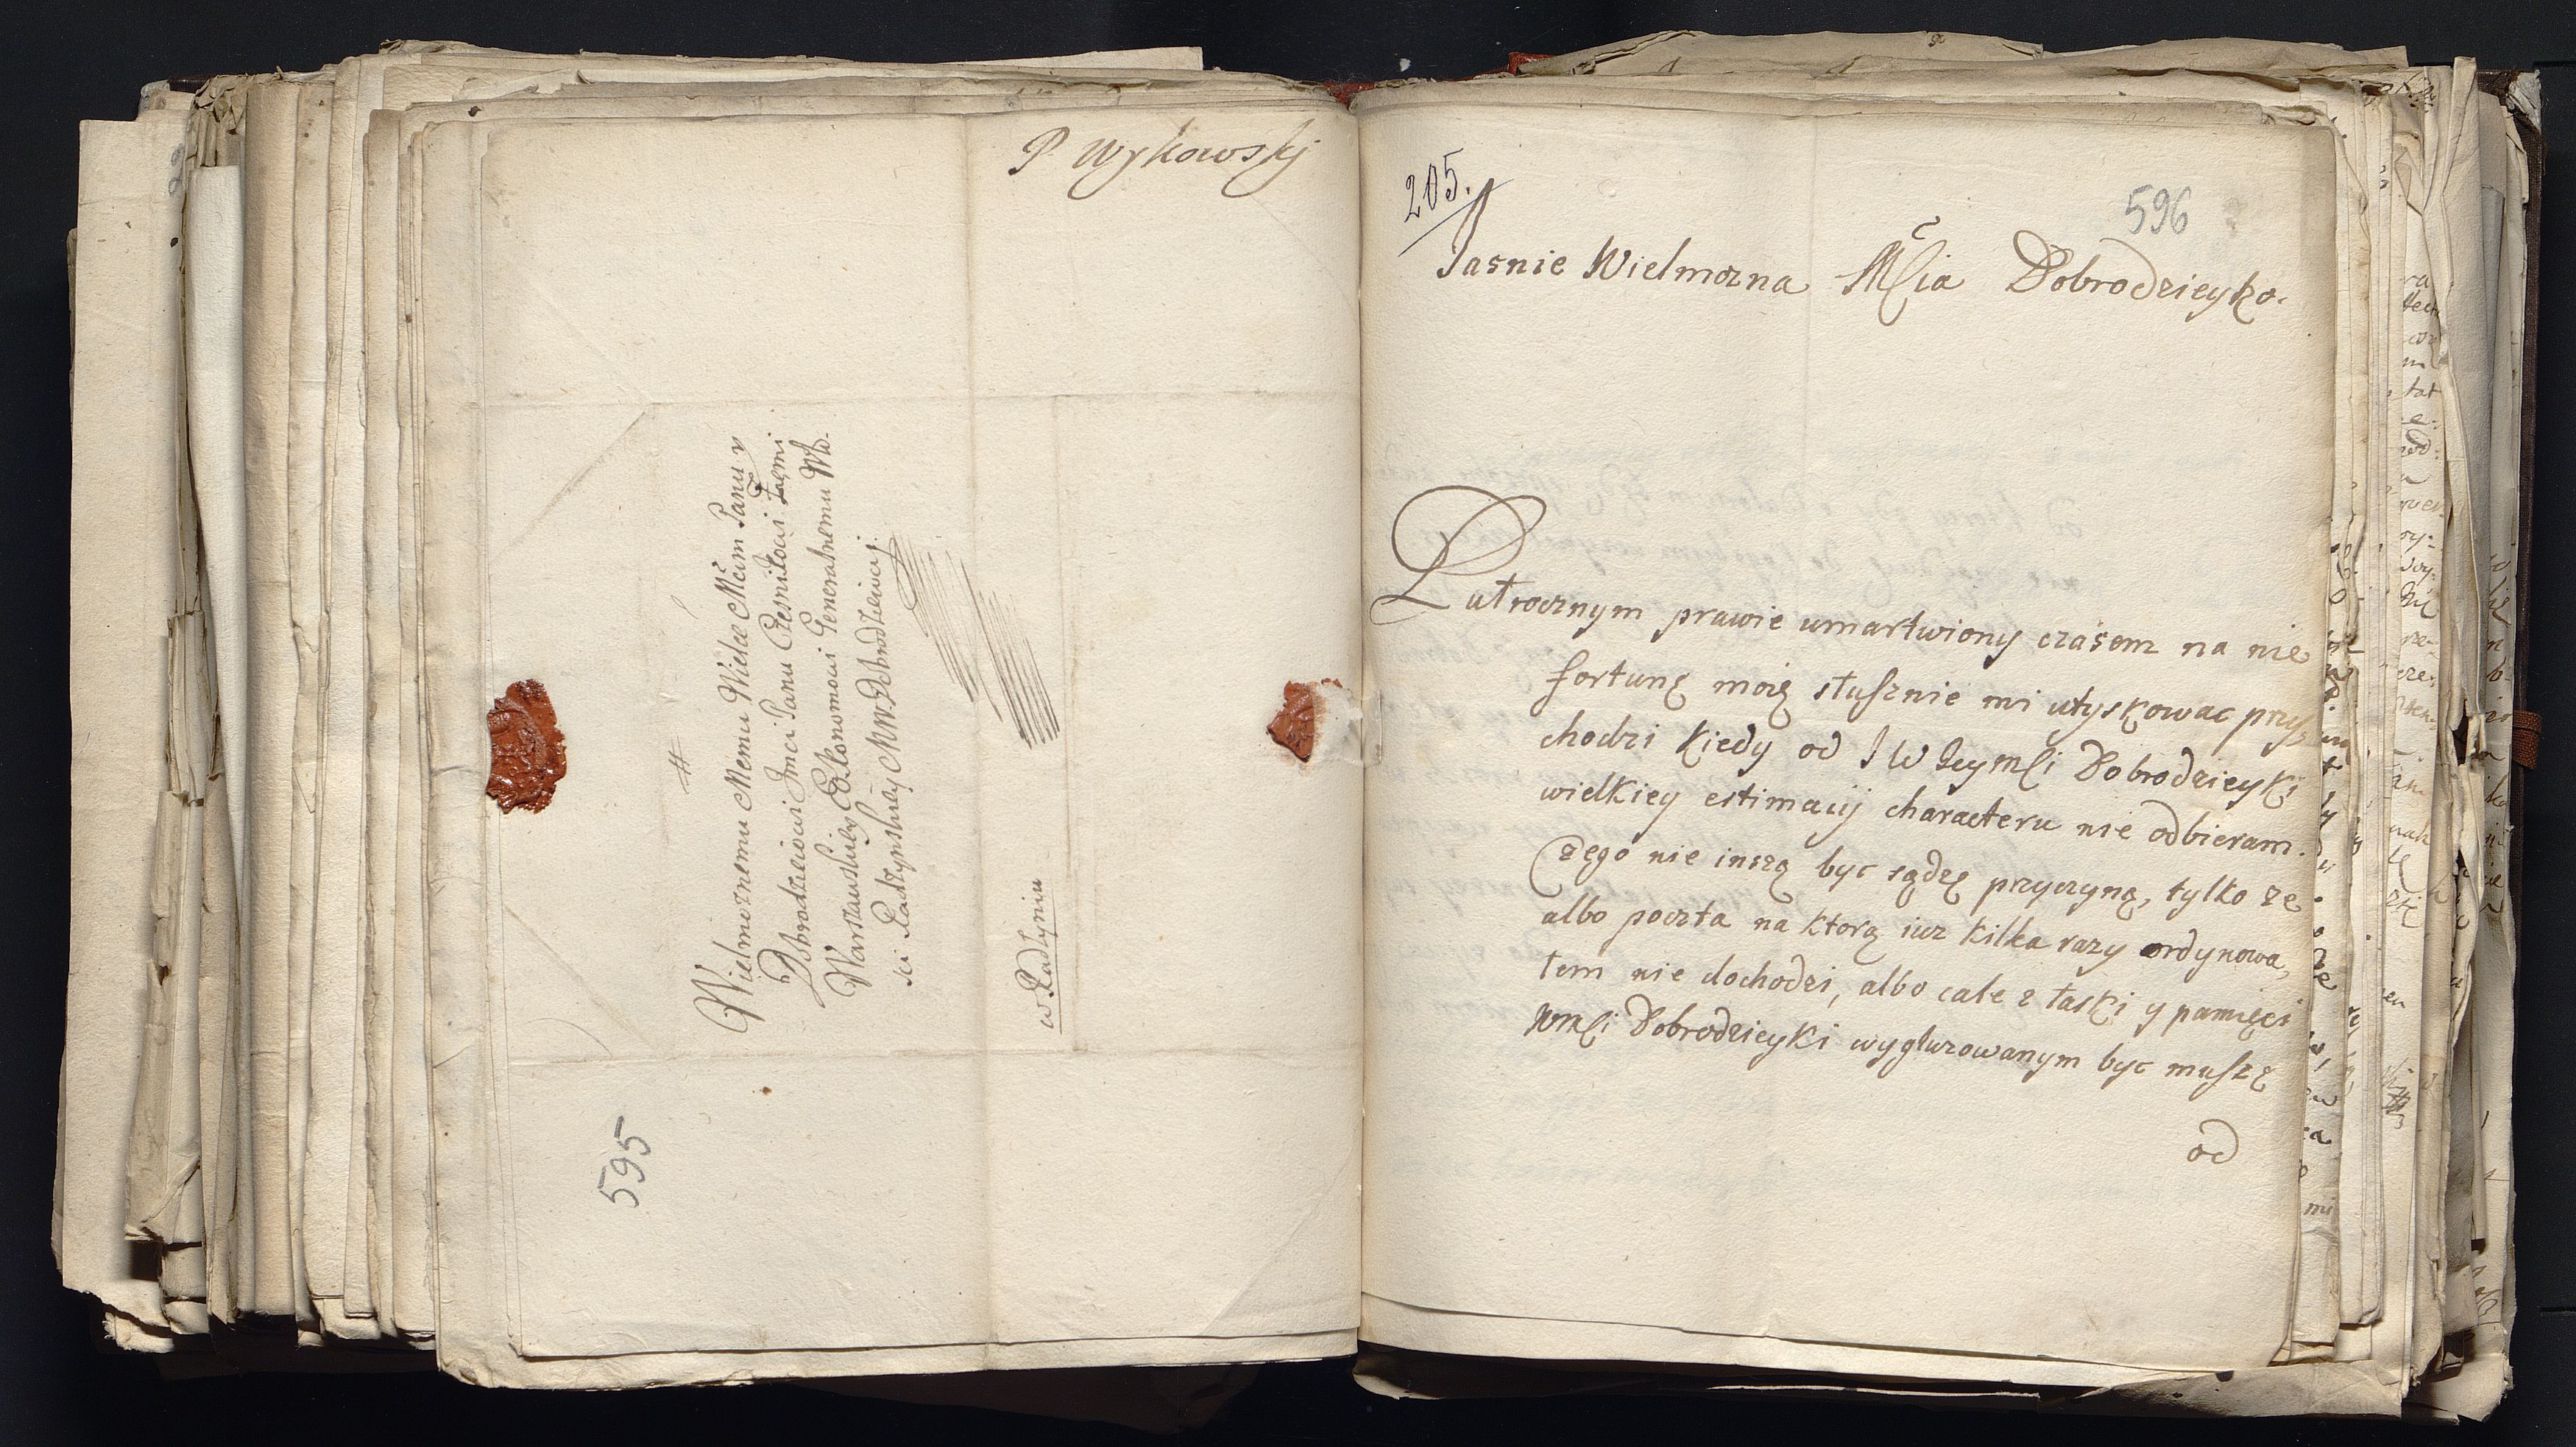 P. Wykowskj
#
Wielmoznemu Memu Wielce Mciwm Panu y
Dobrodzieiowi Jmci Panu Czesnikowi Ziemi
Warszawskiey Ekonomowi Generalnemu Wło-
sci Radzynskiey MW Dobrodzieiowi
w Radzyniu
595
205.
596
Jasnie Wielmozna Mścia Dobrodzieyko.
Pułrocznym prawie umartwiony czásem na nie
fortunę moię słusznie mi utyskowac przy,
chodzi kiedy od J W Jeymści Dobrodzieyki
wielkiey estimacij characteru nie odbieram.
Czego nie inszą byc sądzę przyczynę, tylko ze
albo poczta na ktorą iuz kilka razy ordynowa,
łem nie dochodzi, albo cale z łaski y pamięci
WMści Dobrodzieyki wygluzowanym byc muszę
od